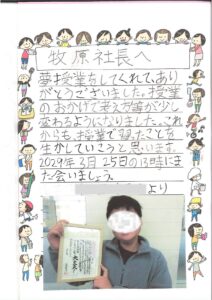 牧原社長へ
夢授業をしてくれて、あり
がとうございました。授業
のおかげで考え方等が少し
変わるようになりました。これ
からも、授業で習ったことを
生かしていこうと思います。
2029年3月25日の13時にま
た会いましょう。
より